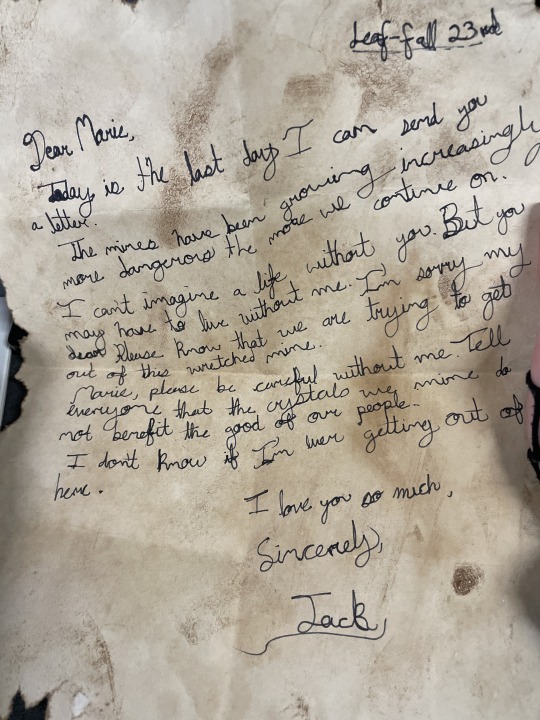 Leaf-fall 23rd
Dear Marie,
Today is the last day I can send you
a letter.
The mines have been growing increasingly
more dangerous the more we continue on.
I can't imagine a life without you. But you
may have to live without me. I'm sorry my
dear Please know that we are trying to get
out of this wretched mine.
Marie, please be careful without me. Tell
everyone that the crystals we mine do
not benefit the good of our people.
I don't know if I'm ever getting out of
here.
I love you so much,
Sincerely,
Jack